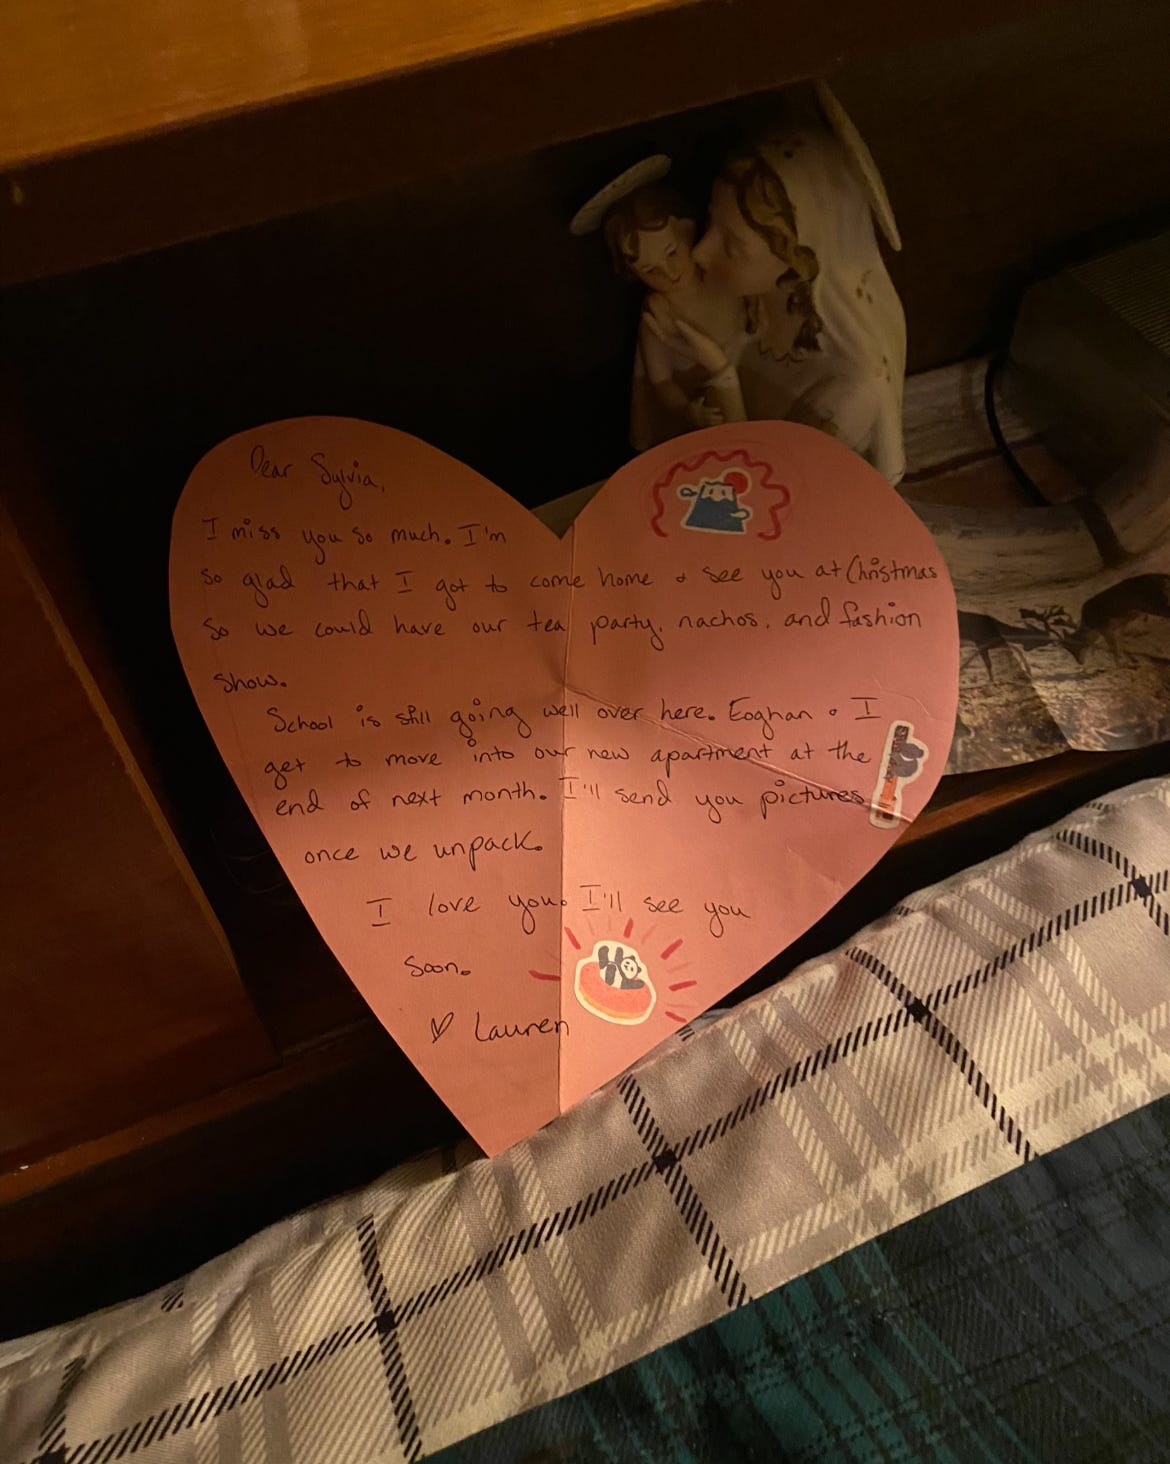 Dear Sylvia,
I miss you so much. I'm
so glad that I got to come home & see you at Christmas
so we could have our tea party, nachos, and fashion
show.
School is still going well over here. Eoghan & I
get to move into our new apartment at the
end of next month. I'll send you pictures
once we unpack.
I love you. I'll see you
soon.
♡ Lauren